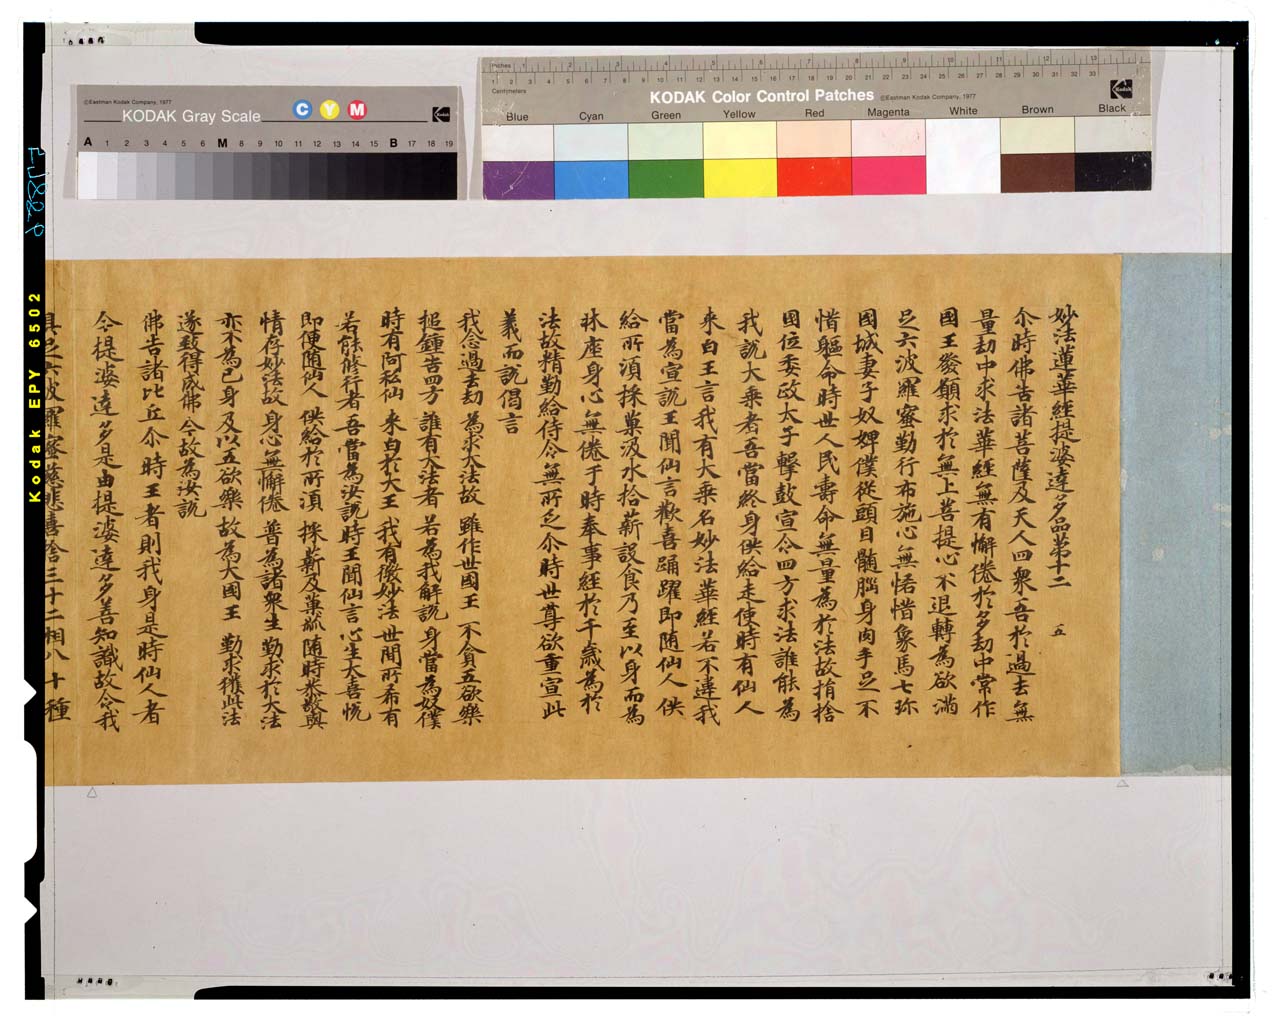 ©Eastman Kodak Company, 1977
KODAK Gray Scale
C Y M
Kodak
A 1 2 3 4 5 6 M 8 9 10 11 12 13 14 15 B 17 18 19
Inches 1 2 3 4 5 6 7 8 9 10 11 12 13
1 2 3 4 5 6 7 8 9 10 11 12 13 14 15 16 17 18 19 20 21 22 23 24 25 26 27 28 29 30 31 32 33
Centimetres
KODAK Color Control Patches ©Eastman Kodak Company, 1977
Kodak
Blue Cyan Green Yellow Red Magenta White Brown Black
Kodak EPY 6502
妙法蓮華經提婆達多品第十二 五
尒時佛告諸菩薩及天人四衆吾於過去無
量劫中求法華經無有懈倦於多劫中常作
國王發願求於無上菩提心不退轉為欲滿
足六波羅蜜勤行布施心無悋惜象馬七珎
國城妻子奴婢僕從頭目髓腦身肉手足不
惜軀命時世人民壽命無量為於法故捐捨
國位委政太子擊鼓宣令四方求法誰能為
我說大乘者吾當終身供給走使時有仙人
來白王言我有大乘名妙法華經若不違我
當為宣說王聞仙言歡喜踊躍即随仙人供
給所湏採菓汲水拾薪設食乃至以身而為
牀座身心無倦于時奉事經於千歲為於
法故精勤給侍令無所乏尒時世尊欲重宣此
義而說偈言
我念過去劫 為求大法故 雖作世國王 不貪五欲樂
搥鍾告四方 誰有大法者 若為我解說 身當為奴僕
時有阿私仙 来白於大王 我有微妙法 世間所希有
若能修行者 吾當為汝說 時王聞仙言 心生大喜恱
即便随仙人 供給於所湏 採薪及菓蓏 随時恭敬與
情存妙法故 身心無懈倦 普為諸衆生 勤求於大法
亦不為己身 及以五欲樂 故為大國王 勤求獲此法
遂致得成佛 今故為汝說
佛告諸比丘尒時王者則我身是時仙人者
今提婆達多是由提婆達多善知識故令我
具足六波羅蜜慈悲喜捨三十二相八十種